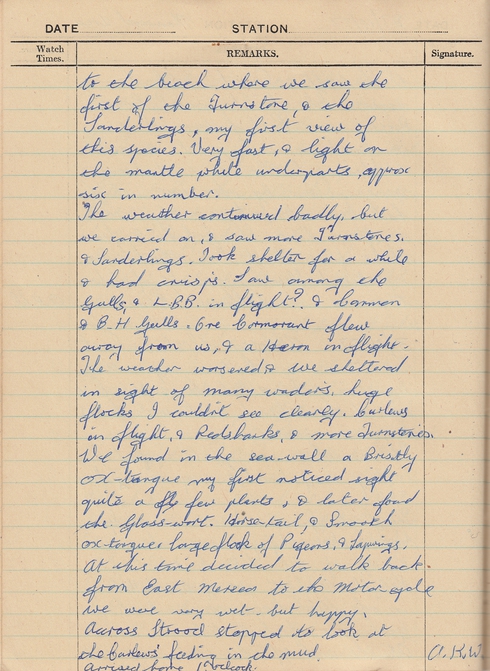 DATE STATION
Watch Times. REMARKS. Signature.
to the beach where we saw the
first of the Turnstone, & the
Sanderlings, my first view of
this species. Very fast, & light on
the mantle while underparts, approx
six in number.
The weather continued badly, but
we carried on, & saw more Turnstones,
& Sanderlings. Took shelter for a while
& had crisps. Saw among the
Gulls, & L.B.B. in flight? & Common
& B.H Gulls. One Cormorant flew
away from us, & a Heron in flight.
The weather worsened & we sheltered
in sight of many waders, huge
flocks I couldn't see clearly. Curlews
in flight, & Redshanks, & more Turnstones.
We found in the sea-wall a Bristly
ox-tongue my first noticed sight
quite a few plants, & later found
the Glass-wort. Horse-tail, & Smooth
ox-tongue. large flock of Pigeons, & Lapwings.
At this time decided to walk back
from East Mersea to the Motor-cycle
we were very wet but happy.
Across Strood stopped to look at
the Curlews feeding in the mud.
Arrived home 1 o'clock. A.K.W.